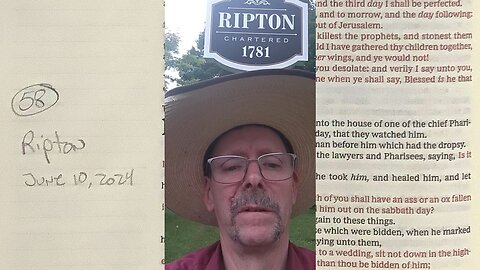 58
Ripton
June 10, 2024
RIPTON
CHARTERED
1781
and the third day I shall be perfected.
and to morrow, and the day following:
out of Jerusalem.
killest the prophets, and stonest them
ld I have gathered thy children together,
er wings, and ye would not!
you desolate: and verily I say unto you,
me when ye shall say, Blessed is he that
into the house of one of the chief Phari-
day, that they watched him.
man before him which had the dropsy.
the lawyers and Pharisees, saying, Is it
he took him, and healed him, and let
ch of you shall have an ass or an ox fallen
him out on the sabbath day?
gain to these things.
se which were bidden, when he marked
ying unto them,
to a wedding, sit not down in the high-
than thou be bidden of him